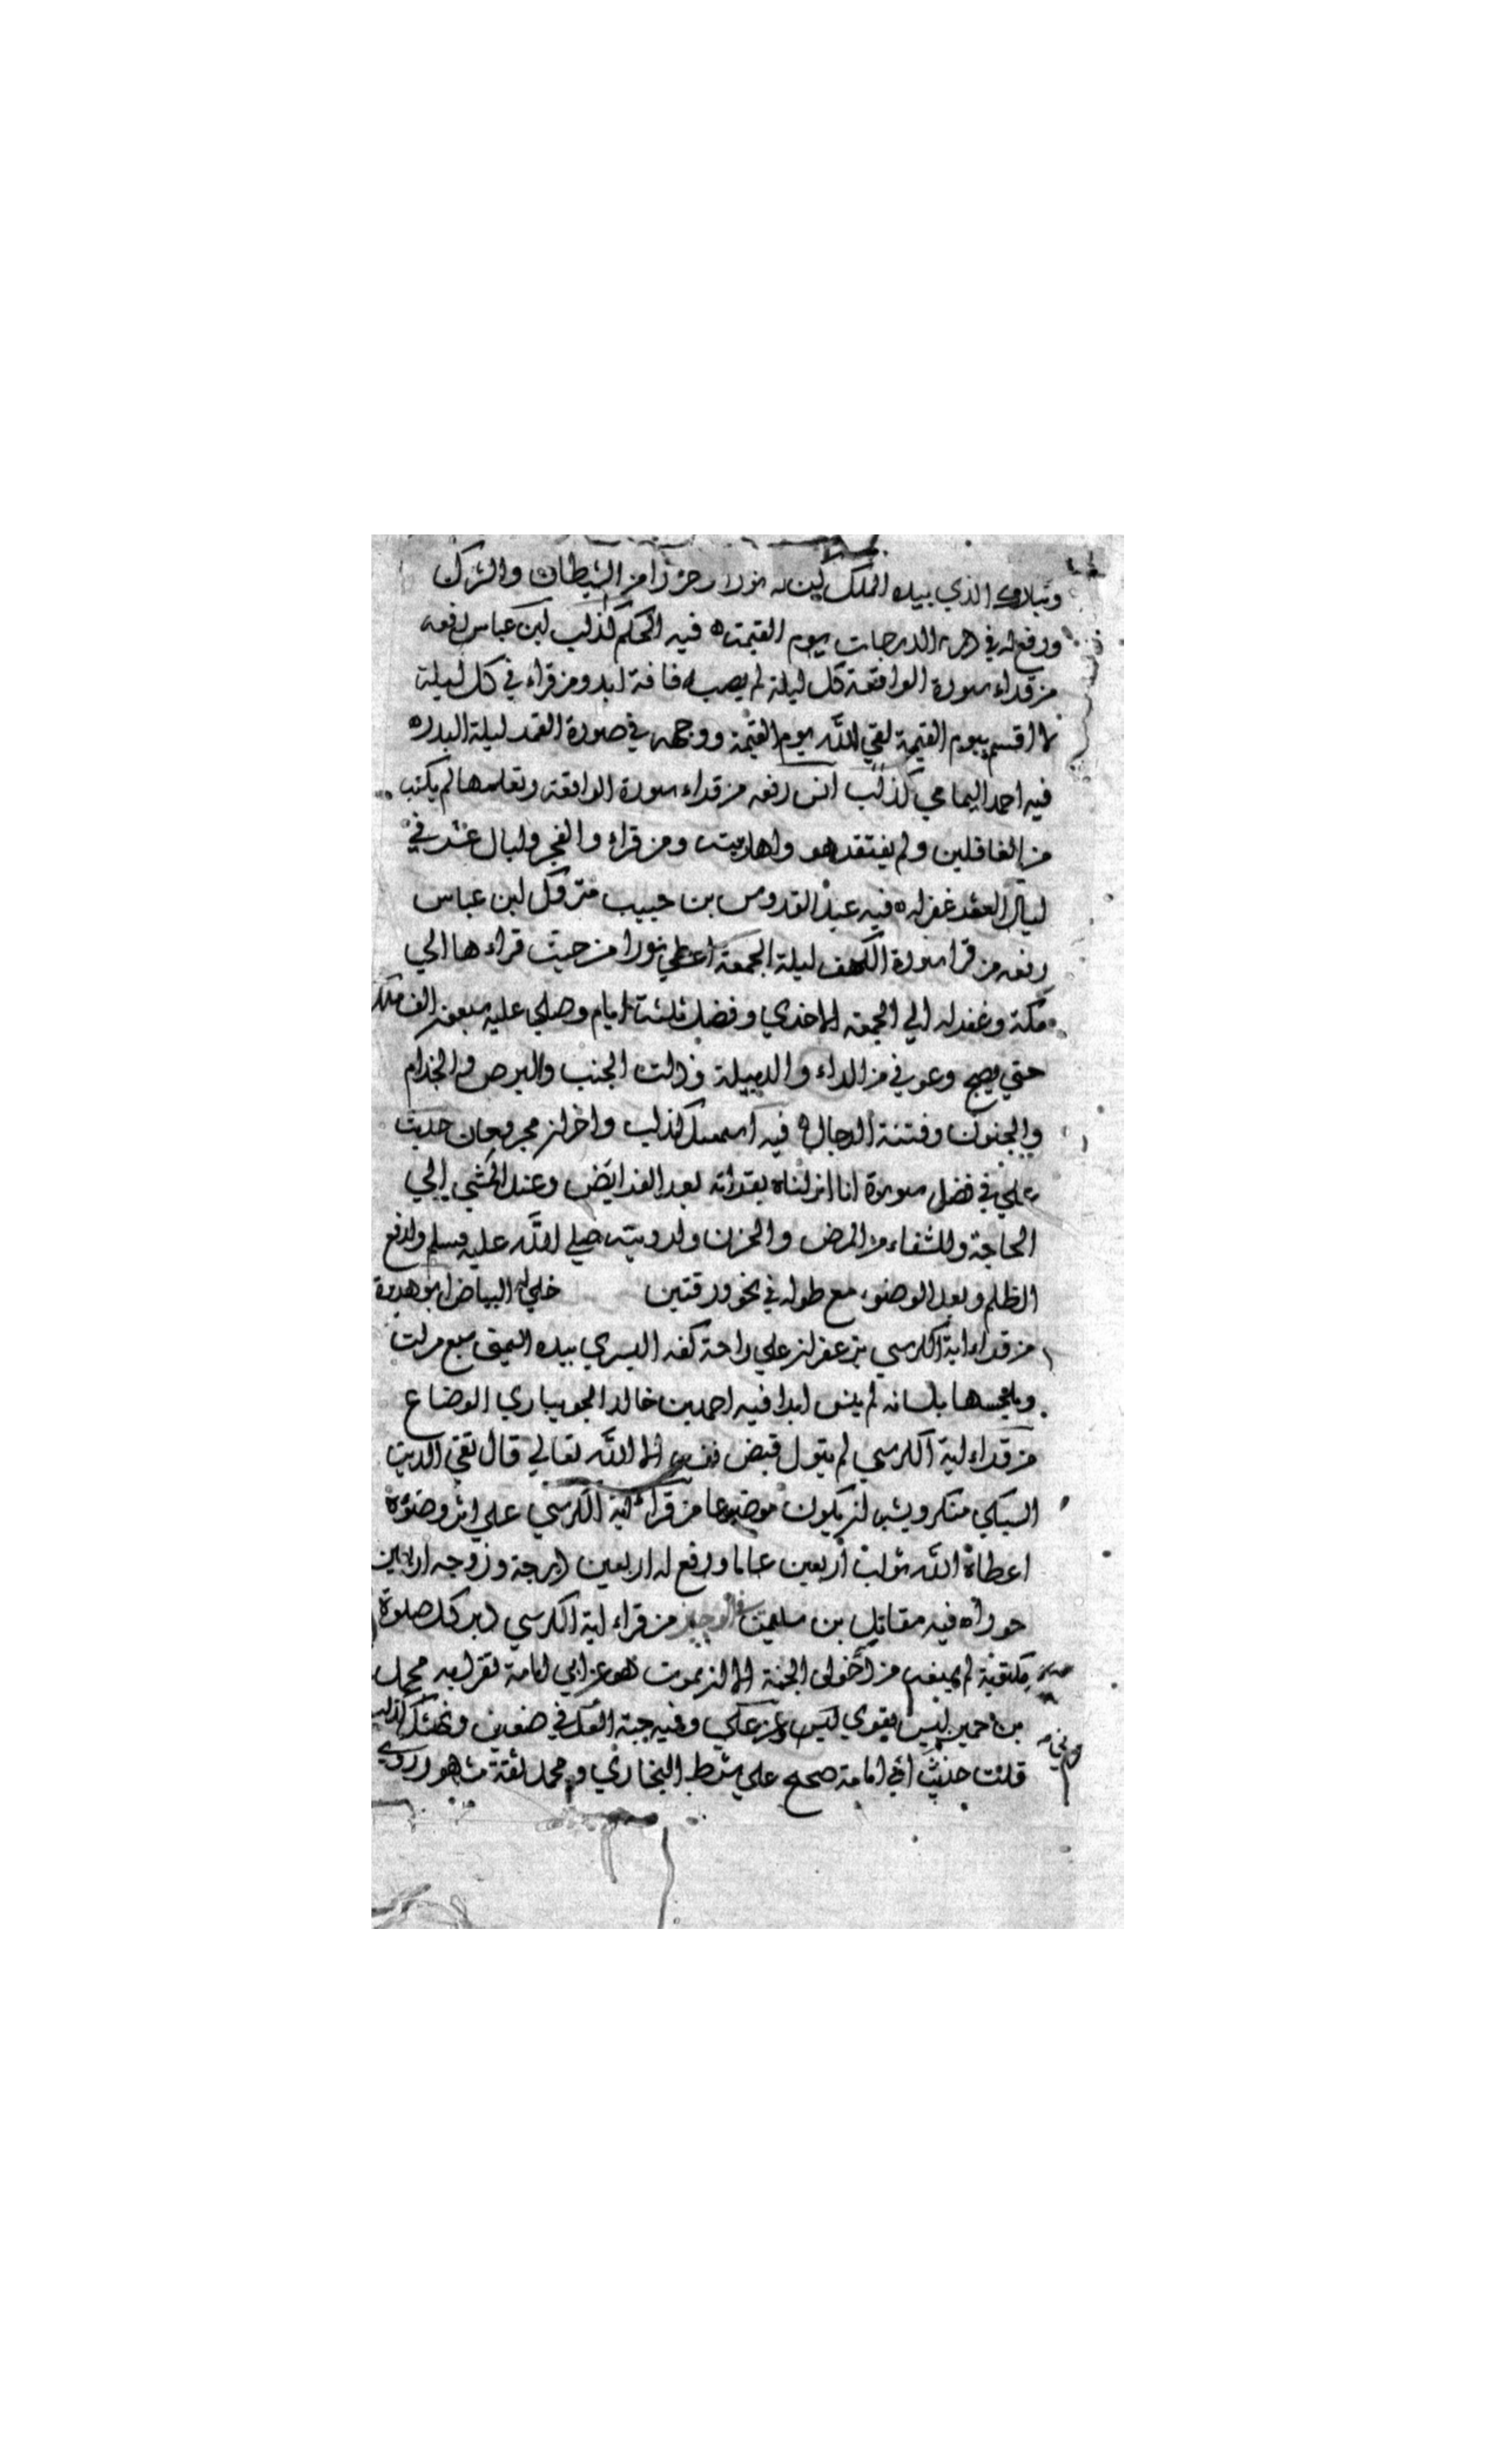 وتبارك الذي بيده الملك كن له نورا وحرزا من الشيطان والشرك
ورفع له في الدرجات يوم القيمة ه فيه الحكم كذاب ابن عباس رفعه
من قراء سورة الواقعة كل ليلة لم يصبه فاقة ابدا ومن قراء في كل ليلة
لا اقسم بيوم القيمة لقي الله يوم القيمة ووجهه في صورة القمر ليلة البدر ه
فيه احمد اليمامي كذاب انس رفعه من قراء سورة الواقعة وتعلمها لم يكتب
من الغافلين ولم يفتقر هو واهل بيته ومن قراء والفجر وليال عشر في
ليال العشر غفر له ه فيه عبد القدوس بن حبيب متروك ابن عباس
رفعه من قرا سورة الكهف ليلة الجمعة اعطي نورا من حيث قراءها الي
مكة وغفر له الي الجمعة الاخري وفضل ثلثة ايام وصلي عليه سبعون الف ملك
حتي يصبح وعوفي من الداء والدبيلة وذات الجنب والبرص والجذام
والجنون وفتنة الدجال ه فيه اسمعيل كذاب واخر مجروحان حديث
علي في فضل سورة انا انزلناه بقراته بعد الفرايض وعند المشي الي
الحاجة وللشفاء من المرض والحزن ولرويته صلي الله عليه وسلم ولدفع
الظلم وبعد الوضوء مع طوله في نحو ورقتين خلي البياض ابو هريرة
من قراء اية الكرسي بزعفران علي راحة كفه اليسري بيده اليمني سبع مرات
ويلحسها بلسانه لم ينس ابدا فيه احمد بن خالد الجويباري الوضاع
من قراء اية الكرسي لم يتول قبض نفسه الا الله تعالي قال تقي الدين
السبكي منكر ويشبه ان يكون موضوعا من قراء اية الكرسي علي اثر وضوئه
اعطاه الله ثواب اربعين عاما ورفع له اربعين درجة وزوجه اربعين
حوراه فيه مقاتل بن سليمن في الوجيز من قراء اية الكرسي دبر كل صلوة
مكتوبة لم يمنعه من دخول الجنة الا ان يموت هو عن ابي امامة تفرد به محمد
بن حمير ليس بقوي ليس وعن علي وفيه حبة العرني ضعيف ونهشل كذاب
قلت حديث ابي امامة صحيح علي شرط البخاري ومحمد ثقة مشهور روي